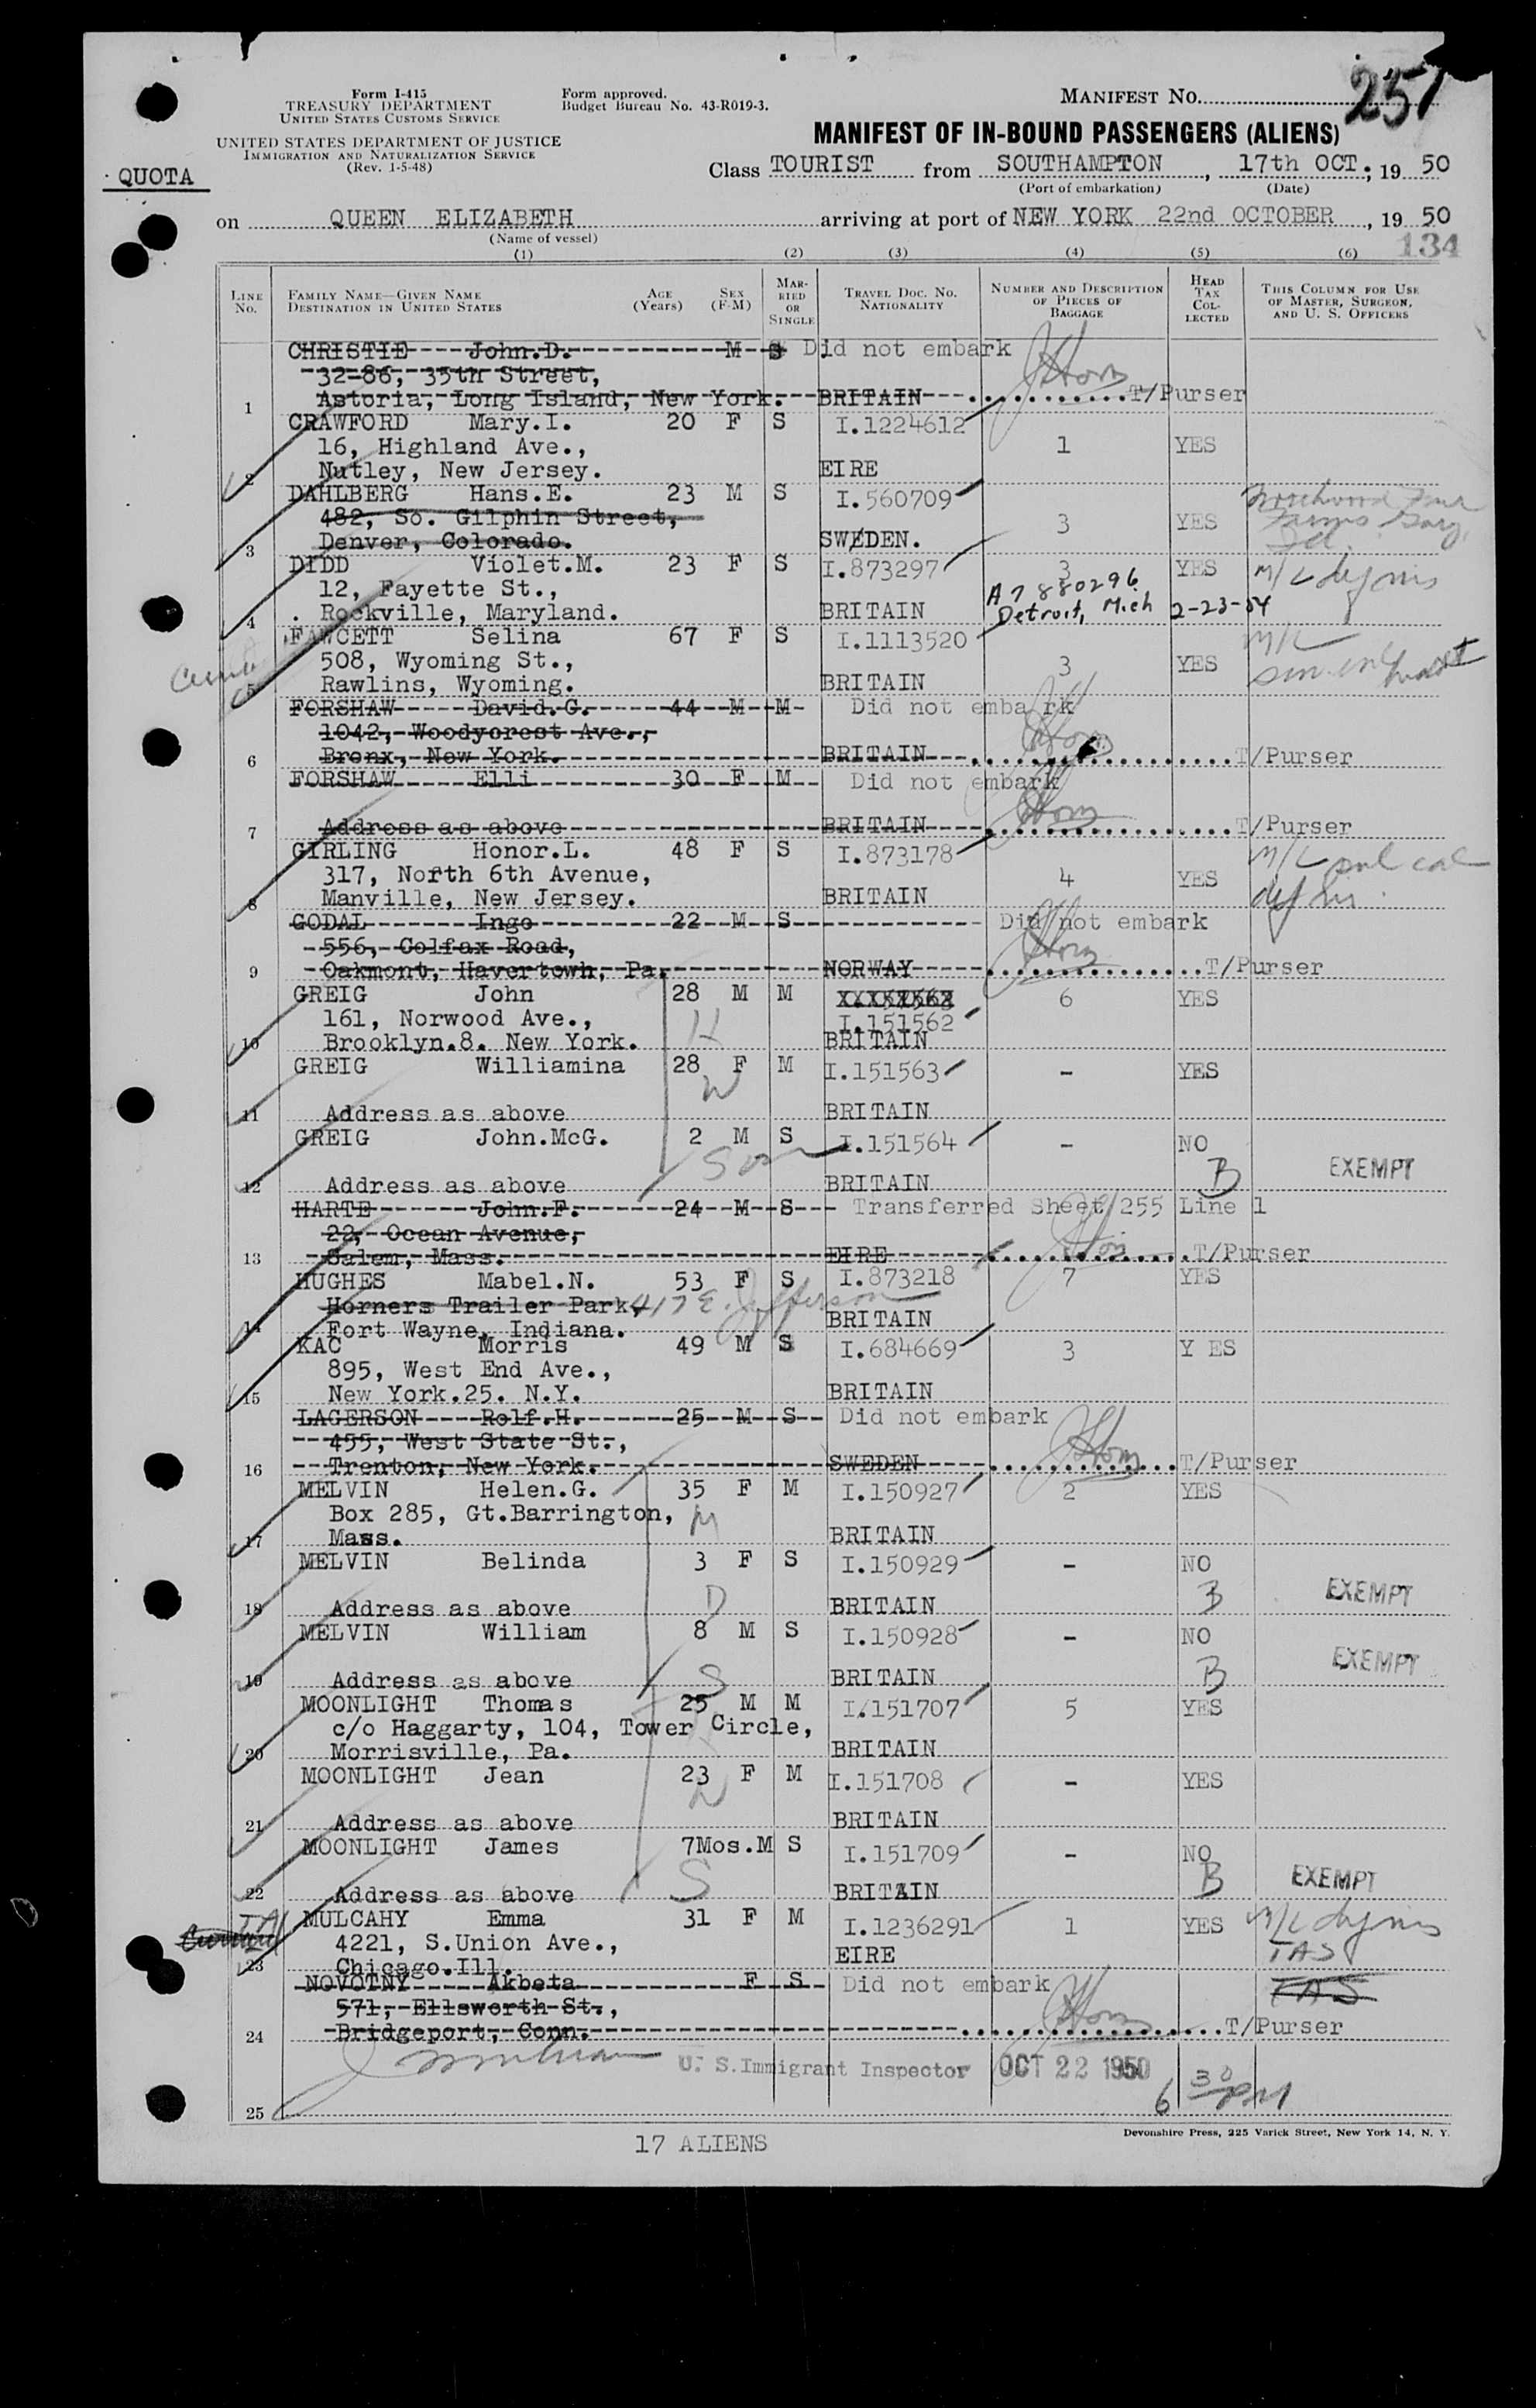 257
Form I-415
TREASURY DEPARTMENT
UNITED STATES CUSTOMS SERVICE
UNITED STATES DEPARTMENT OF JUSTICE
IMMIGRATION AND NATURALIZATION SERVICE
(Rev. 1-5-48)
Form approved.
Budget Bureau No. 43-R019-3.
MANIFEST NO.
MANIFEST OF IN-BOUND PASSENGERS (ALIENS)
QUOTA
Class TOURIST from SOUTHAMPTON, 17th OCT; 19 50
(Port of embarkation) (Date)
on QUEEN ELIZABETH arriving at port of NEW YORK 22nd OCTOBER, 19 50
(Name of vessel)
134
(1) (2) (3) (4) (5) (6)
LINE NO. FAMILY NAME—GIVEN NAME DESTINATION IN UNITED STATES AGE (Years) SEX (F-M) MARRIED OR SINGLE TRAVEL DOC. NO. NATIONALITY NUMBER AND DESCRIPTION OF PIECES OF BAGGAGE HEAD TAX COLLECTED THIS COLUMN FOR USE OF MASTER, SURGEON, AND U. S. OFFICERS
CHRISTIE John.D. M S Did not embark
32-86, 35th Street,
1 Astoria, Long Island, New York. BRITAIN T/Purser
CRAWFORD Mary.I. 20 F S I.1224612
16, Highland Ave., 1 YES
2 Nutley, New Jersey. EIRE
DAHLBERG Hans.E. 23 M S I.560709
482, So. Gilphin Street, 3 YES
3 Denver, Colorado. SWEDEN.
DIDD Violet.M. 23 F S I.873297 3 YES
12, Fayette St., A7 880296
4 Rockville, Maryland. BRITAIN Detroit, Mich 2-23-54
FAWCETT Selina 67 F S I.1113520
508, Wyoming St., 3 YES
5 Rawlins, Wyoming. BRITAIN
FORSHAW David.G. 44 M M Did not emba rk
1042, Woodycrest Ave.,
6 Bronx, New York. BRITAIN T/Purser
FORSHAW Elli 30 F M Did not embark
7 Address as above BRITAIN T/Purser
GIRLING Honor.L. 48 F S I.873178
317, North 6th Avenue, 4 YES
8 Manville, New Jersey. BRITAIN
GODAL Ingo 22 M S Did not embark
556, Colfax Road,
9 Oakmont, Havertowh, Pa. NORWAY T/Purser
GREIG John 28 M M 6 YES
161, Norwood Ave., H I.151562
10 Brooklyn.8. New York. BRITAIN
GREIG Williamina 28 F M I.151563 - YES
W
11 Address as above BRITAIN
GREIG John.McG. 2 M S I.151564 - NO
Son B EXEMPT
12 Address as above BRITAIN
HARTE John.F. 24 M S Transferred Sheet 255 Line 1
22, Ocean Avenue,
13 Salem, Mass. EIRE T/Purser
HUGHES Mabel.N. 53 F S I.873218 7 YES
Horners Trailer Park, 417 E. Jefferson
14 Fort Wayne, Indiana. BRITAIN
KAC Morris 49 M S I.684669 3 Y ES
895, West End Ave.,
15 New York.25. N.Y. BRITAIN
LAGERSON Rolf.H. 25 M S Did not embark
455, West State St.,
16 Trenton, New York. SWEDEN T/Purser
MELVIN Helen.G. 35 F M I.150927 2 YES
Box 285, Gt.Barrington, M
17 Mass. BRITAIN
MELVIN Belinda 3 F S I.150929 - NO
D B EXEMPT
18 Address as above BRITAIN
MELVIN William 8 M S I.150928 - NO
19 Address as above S BRITAIN B EXEMPT
MOONLIGHT Thomas 25 M M I.151707 5 YES
c/o Haggarty, 104, Tower Circle,
20 Morrisville, Pa. BRITAIN
MOONLIGHT Jean 23 F M I.151708 - YES
W
21 Address as above BRITAIN
MOONLIGHT James 7Mos.M S I.151709 - NO
S B EXEMPT
22 Address as above BRITAIN
MULCAHY Emma 31 F M I.1236291 1 YES
4221, S.Union Ave., TAS
23 Chicago.Ill. EIRE
NOVOTNY Akbeta F S Did not embark TAS
571, Ellsworth St.,
24 Bridgeport, Conn. T/Purser
U. S. Immigrant Inspector OCT 22 1950
6 30 PM
25
17 ALIENS
Devonshire Press, 225 Varick Street, New York 14, N. Y.